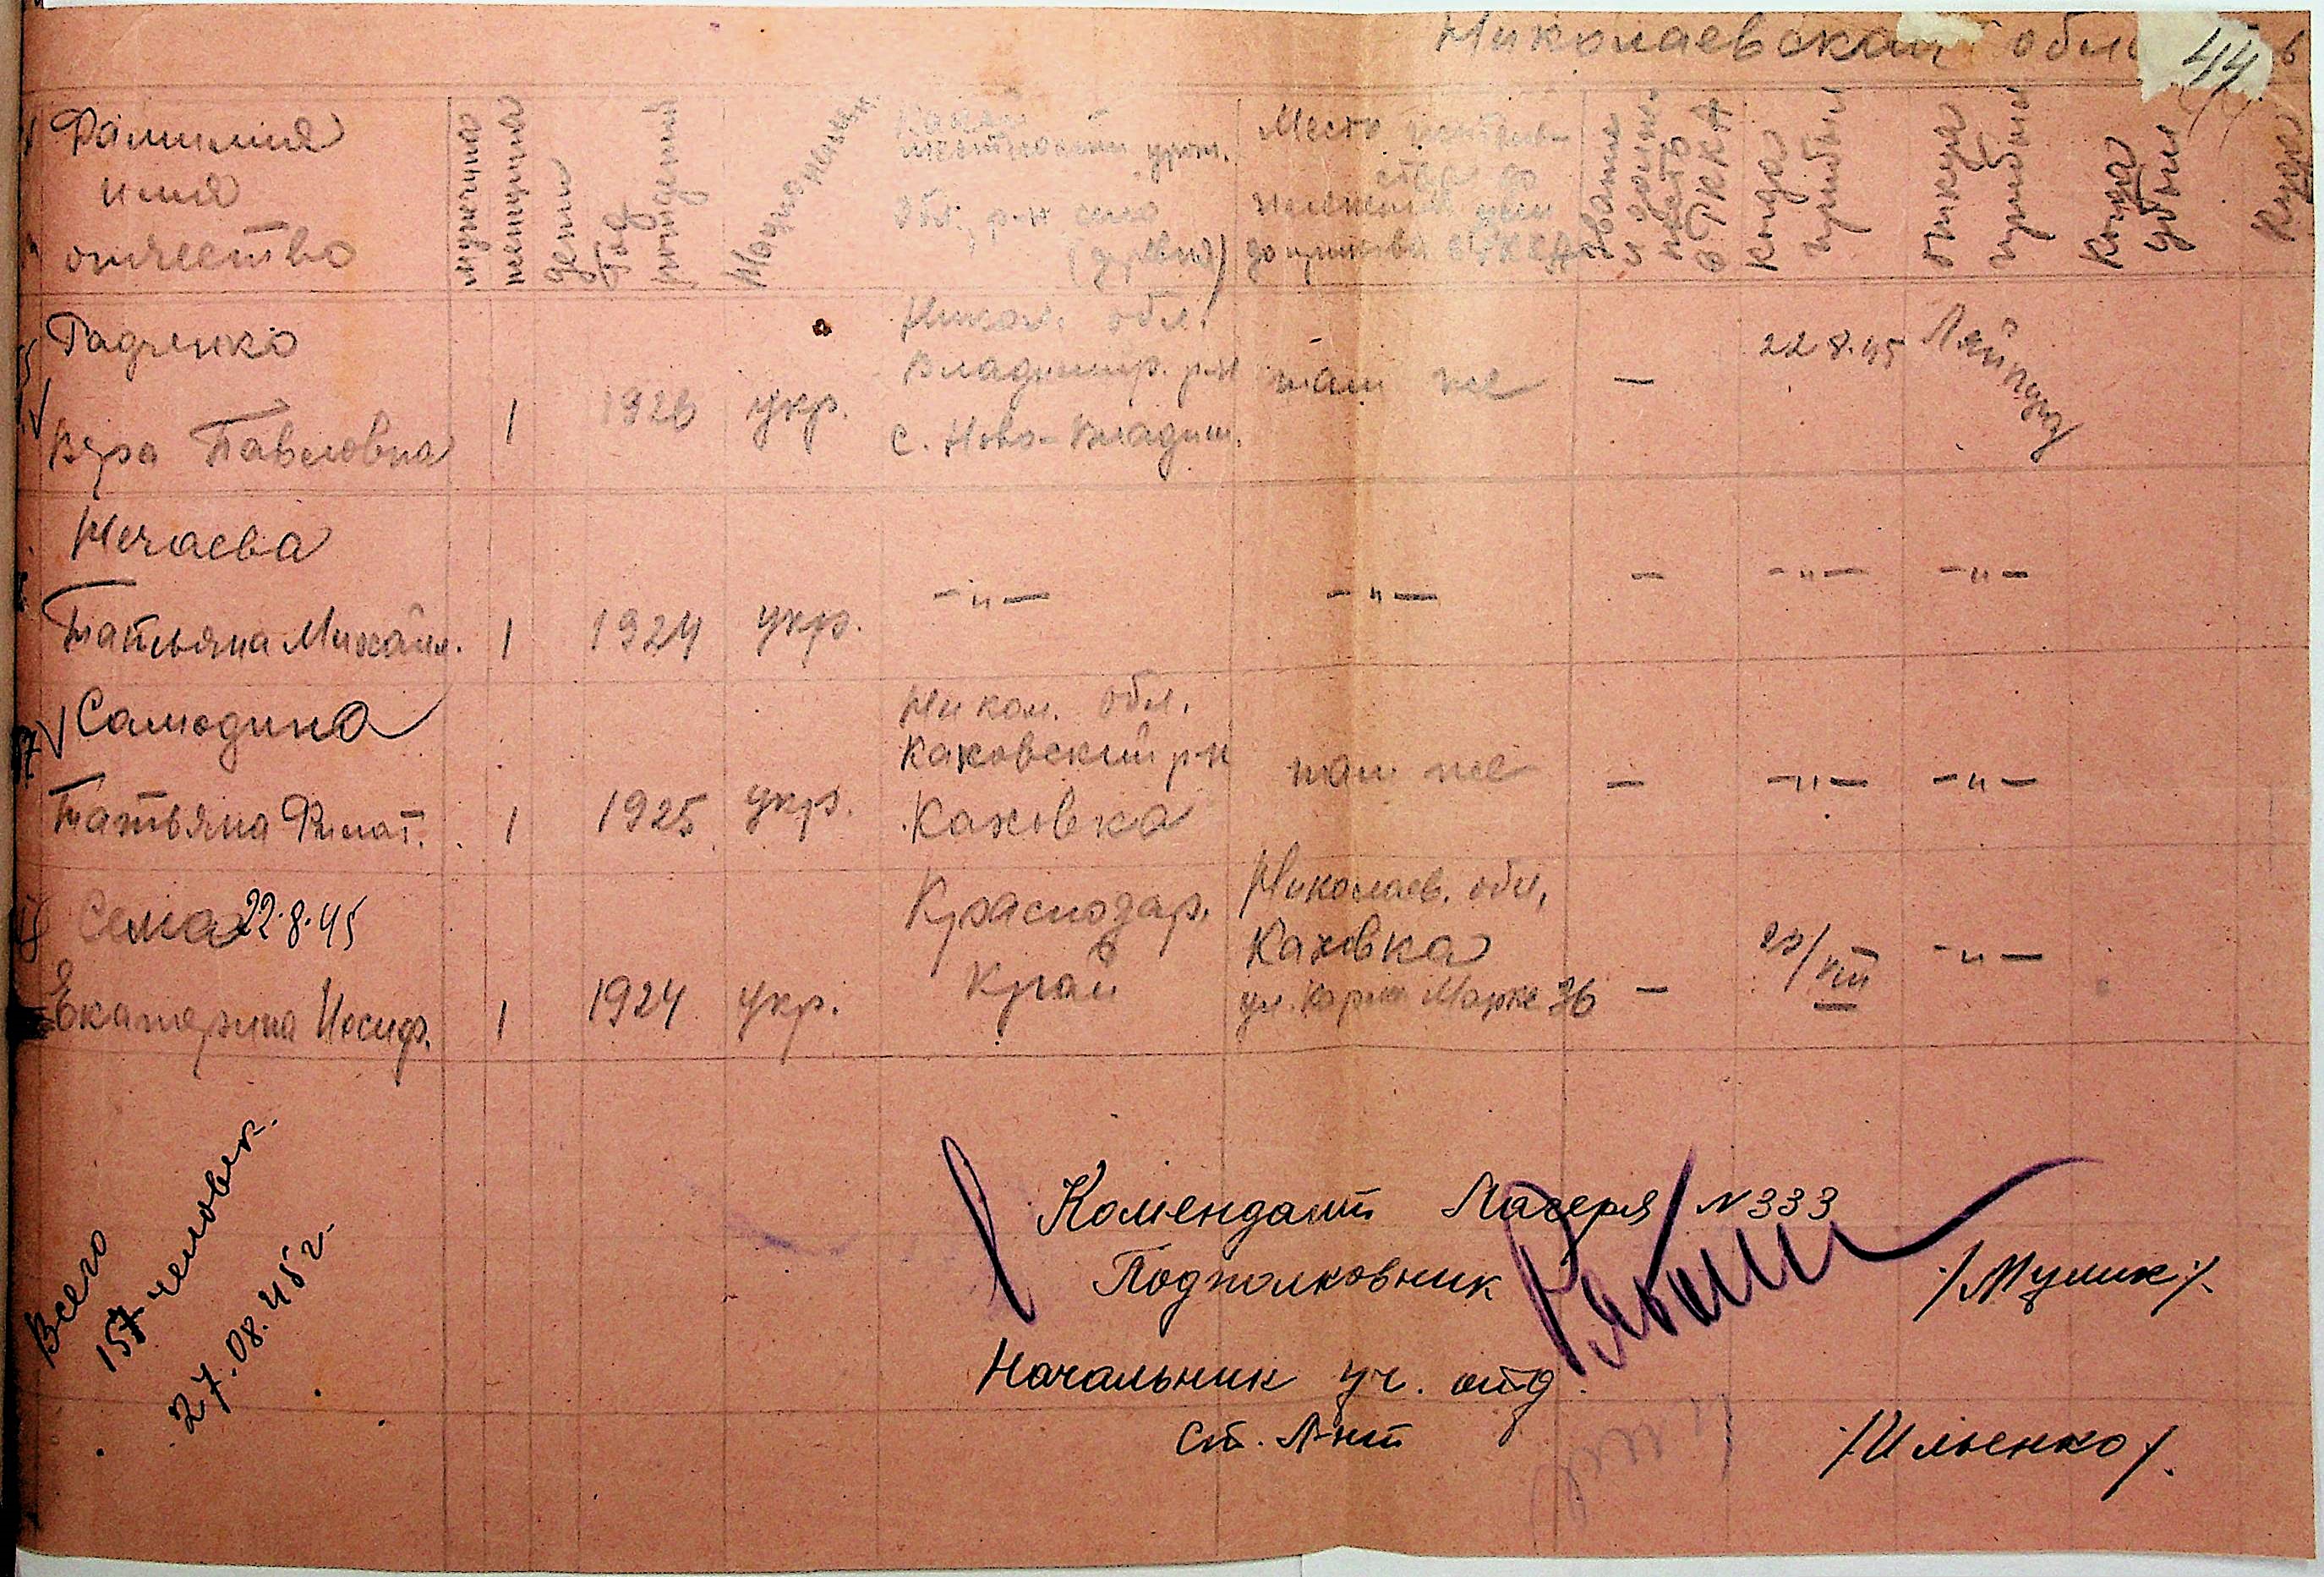 Николаевская обл
44
Фамилия
имя
отчество
мужчина
женщина
дети
Год
рождения
Национальн.
Какой
местности урож.
Обл., р-н село
(деревня)
Место
до
Звание
и должн-
ность
в РККА
Когда
прибыл
Откуда
прибыл
Когда
убыл
Куда
Радченко
Вера Павловна
1
1926
укр.
Никол. обл.
Владимир. р-н
с. Ново-Владим.
там же
—
22 8.45
Лейпциг
Нечаева
Татьяна Михайл.
1
1924
укр.
-"-
-"-
—
-"-
-"-
Самодина
Татьяна Филат.
1
1925
укр.
Никол. обл.
Каховский р-н
Каховка
там же
—
-"-
-"-
22.8.45
Екатерина Иосиф.
1
1924
укр.
Краснодар.
Край
Николаев. обл,
Каховка
ул. Карла Маркс 36
—
/VIII
-"-
Всего
157 человек.
27.08.45г.
Комендант Лагеря N 333
Подполковник
/Мулик/.
Начальник уч. отд.
ст. Л-нт
/Ильенко/.